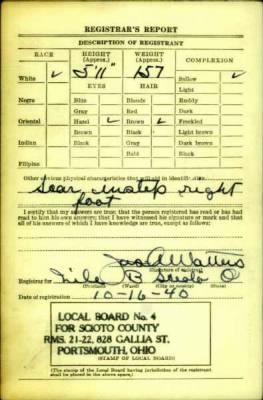 REGISTRAR'S REPORT
DESCRIPTION OF REGISTRANT
RACE HEIGHT (Approx.) WEIGHT (Approx.) COMPLEXION
White ✓ 5'11" 157 Sallow ✓
EYES HAIR Light
Negro Blue Blonde Ruddy
Gray Red Dark
Oriental Hazel ✓ Brown ✓ Freckled
Brown Black Light brown
Indian Black Gray Dark brown
Bald Black
Filipino
Other obvious physical characteristics that will aid in identification
Scar, instep right
foot
I certify that my answers are true; that the person registered has read or has had
read to him his own answers; that I have witnessed his signature or mark and that
all of his answers of which I have knowledge are true, except as follows:
Watters
(Signature of registrar)
Registrar for Nile B Scioto O
(Precinct) (Ward) (City or county) (State)
Date of registration 10-16-40
LOCAL BOARD No. 4
FOR SCIOTO COUNTY
RMS. 21-22, 828 GALLIA ST.
PORTSMOUTH, OHIO
(STAMP OF LOCAL BOARD)
(The stamp of the Local Board having jurisdiction of the registrant
shall be placed in the above space.)